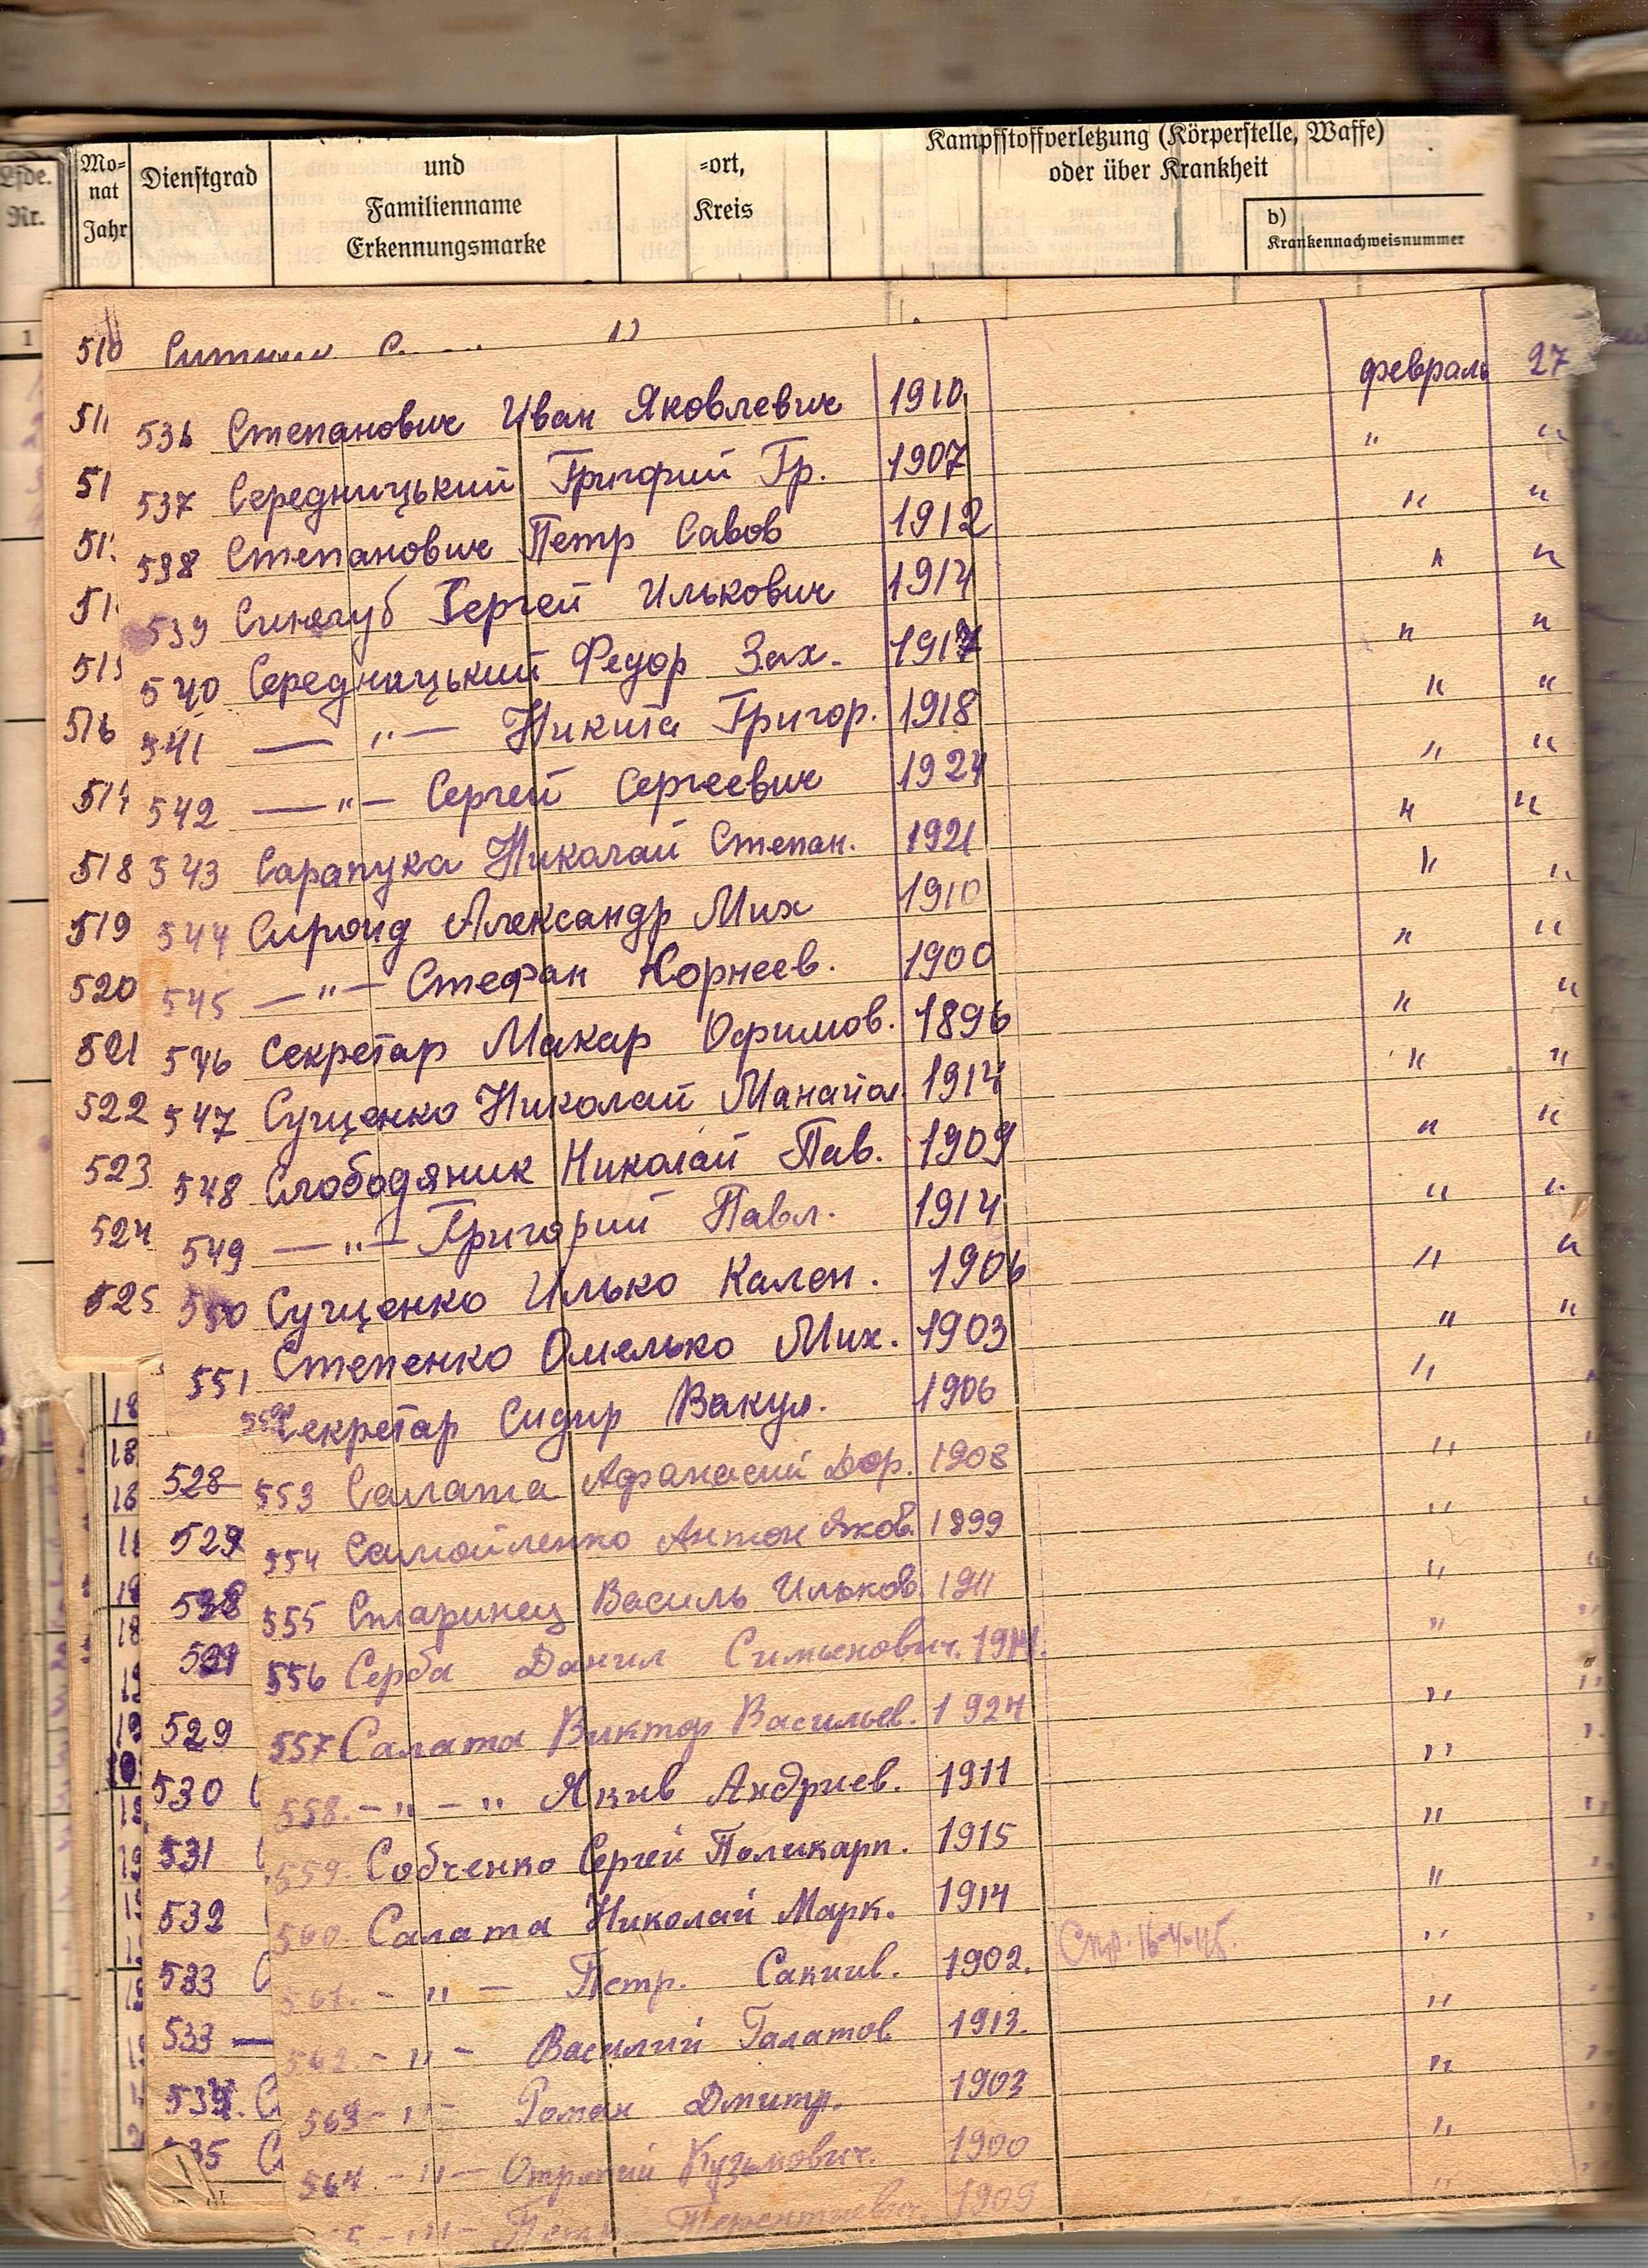 Lfde. Nr.
Mo-nat Jahr
Dienstgrad
und Familienname Erkennungsmarke
-ort, Kreis
Kampfstoffverletzung (Körperstelle, Waffe)
oder über Krankheit
b)
Krankennachweisnummer
1
510
536 Степанович Иван Яковлевич 1910 февраль 27
537 Середницький Григорий Гр. 1907 " "
538 Степанович Петр Савов 1912 " "
539 Синягуб Сергей Илькович 1914 " "
540 Середницький Федор Зах. 1917 " "
541 — " — Никита Григор. 1918 " "
542 — " — Сергей Сергеевич 1924 " "
543 Сарапука Николай Степан. 1921 " "
544 Сироид Александр Мих 1910 " "
545 — " — Стефан Корнеев. 1900 " "
546 Секретар Макар Офимов. 1896 " "
547 Сущенко Николай 1914 " "
548 Слободяник Николай Пав. 1909 " "
549 — " — Григорий Павл. 1914 " "
550 Сущенко Илько Кален. 1906 " "
551 Степенко Омелько Мих. 1903 " "
552 Секретар Сидир Вакул. 1906 "
553 Салата Афанасий Дор. 1908 "
554 Самойленко Антон Яков. 1899 "
555 Старинец Василь Ильков. 1911 "
556 Серба Данил Симонович. "
557 Салата Виктор Васильев. 1924 "
558. - " - " Якив Андриев. 1911 "
559. Собченко Сергей Поликарп. 1915 "
560. Салата Николай Марк. 1914 "
561. - " — Петр. 1902. "
562. - " - Василий Галатов 1913. "
563 - " - Роман Дмитр. 1903 "
564. - " — Кузьмович. 1900 "
- " - Терентиевич. 1909 "
516
518
519
520
521
522
523
524
525
528
529
530
531
532
533
533 —